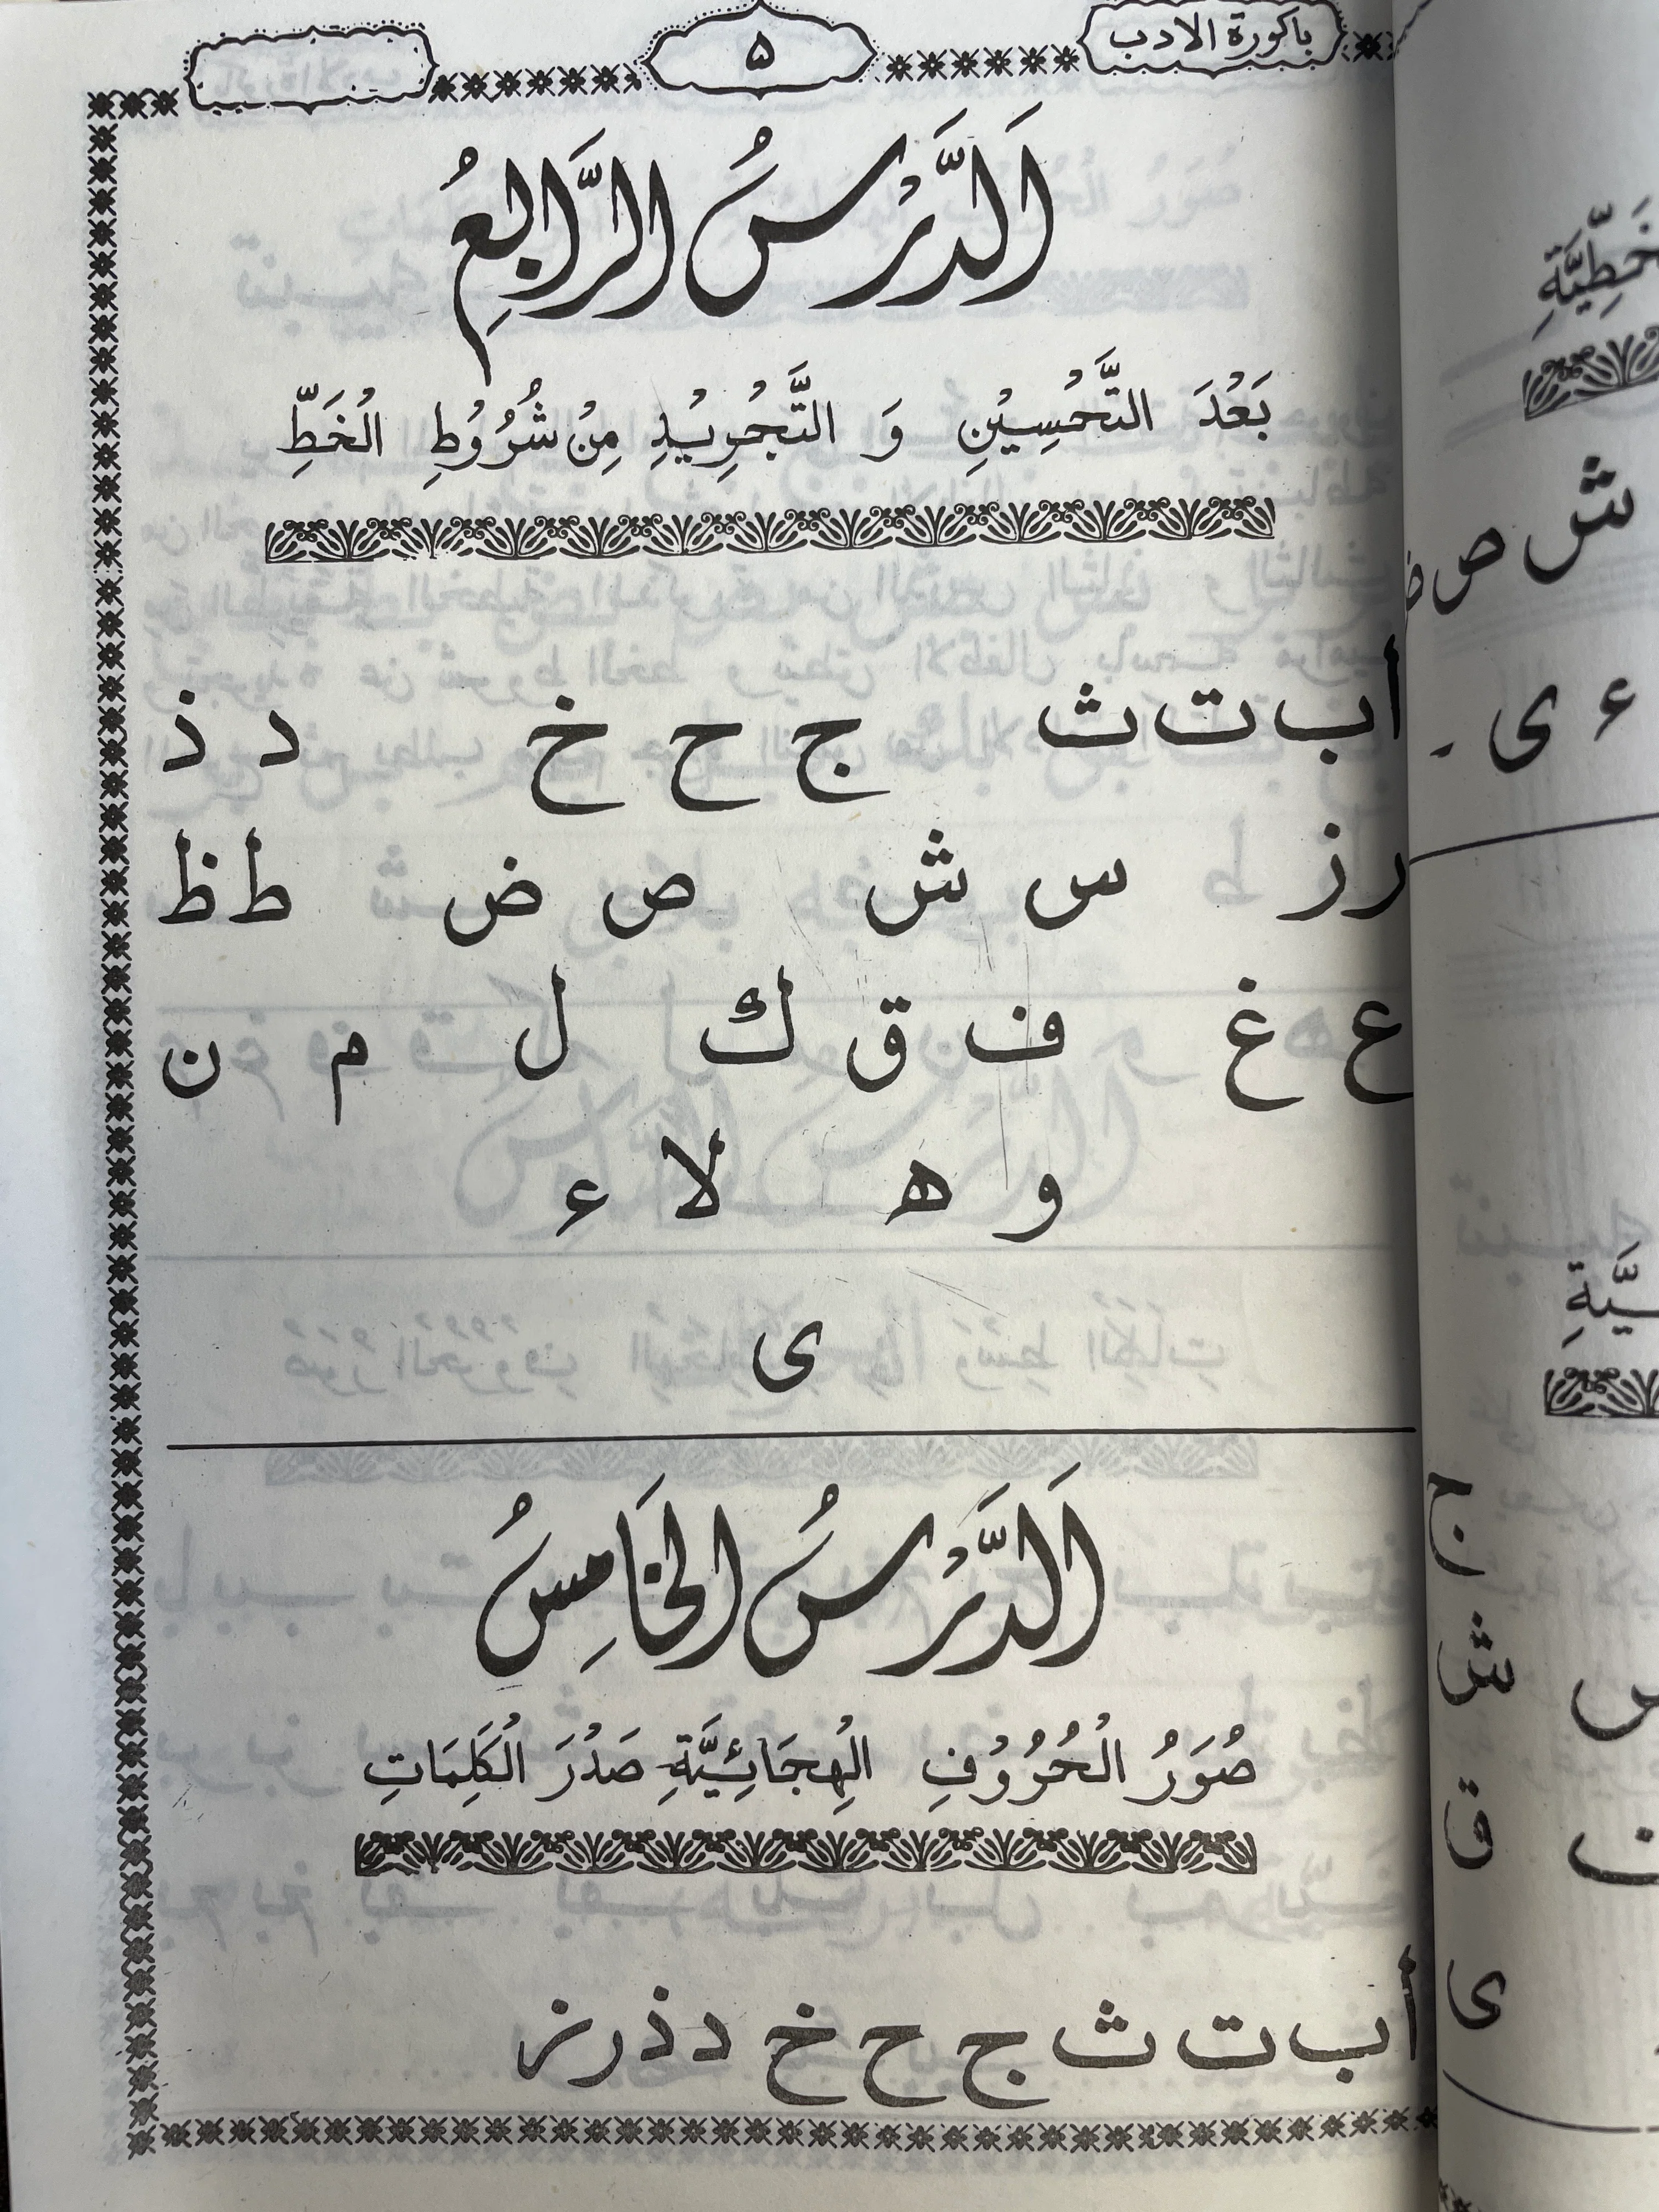 باكورة الادب
۵
اَلدَّرْسُ الرَّابِعُ
بَعْدَ التَّحْسِيْنِ وَ التَّجْرِيْدِ مِنْ شُرُوْطِ الْخَطِّ
ا ب ت ث ج ح خ د ذ
ر ز س ش ص ض ط ظ
ع غ ف ق ك ل م ن
و ه لا ء
ى
اَلدَّرْسُ الخَامِسُ
صُوَرُ الْحُرُوْفِ الْهِجَائِيَّةِ صَدْرَ الْكَلِمَاتِ
ا ب ت ث ج ح خ د ذ ر ز